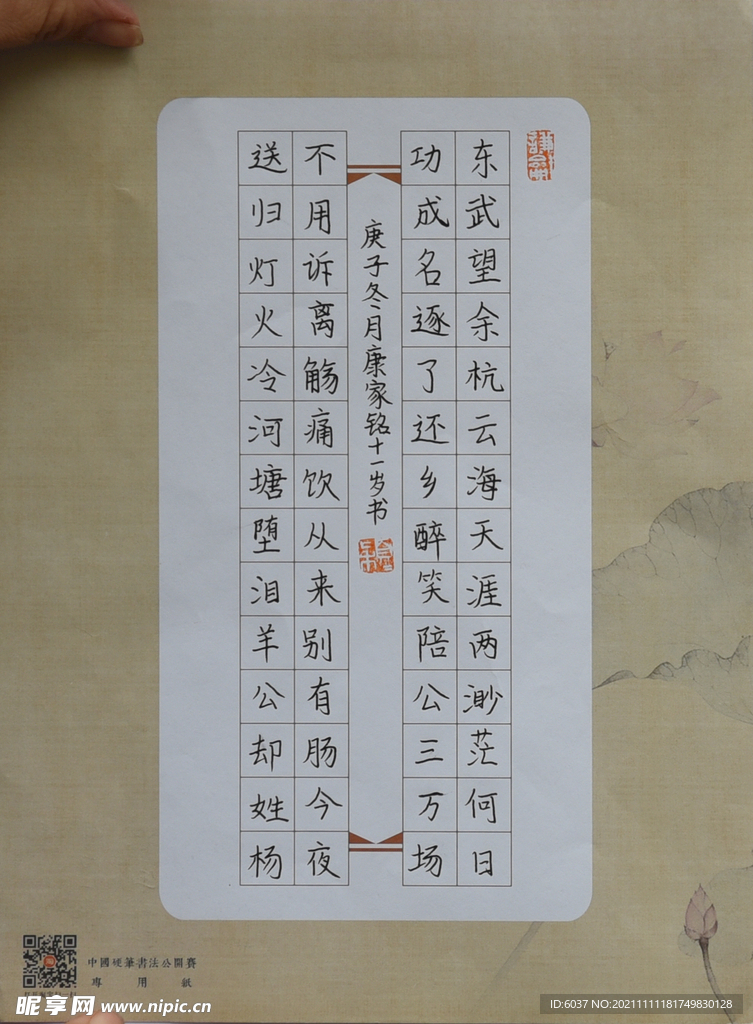 东武望余杭云海天涯两渺茫何日
功成名逐了还乡醉笑陪公三万场
不用诉离觞痛饮从来别有肠今夜
送归灯火冷河塘堕泪羊公却姓杨
庚子冬月康家铭十一岁书
中國硬筆書法公開賽
專用紙
昵享网 www.nipic.cn
ID:6037 NO:20211111181749830128